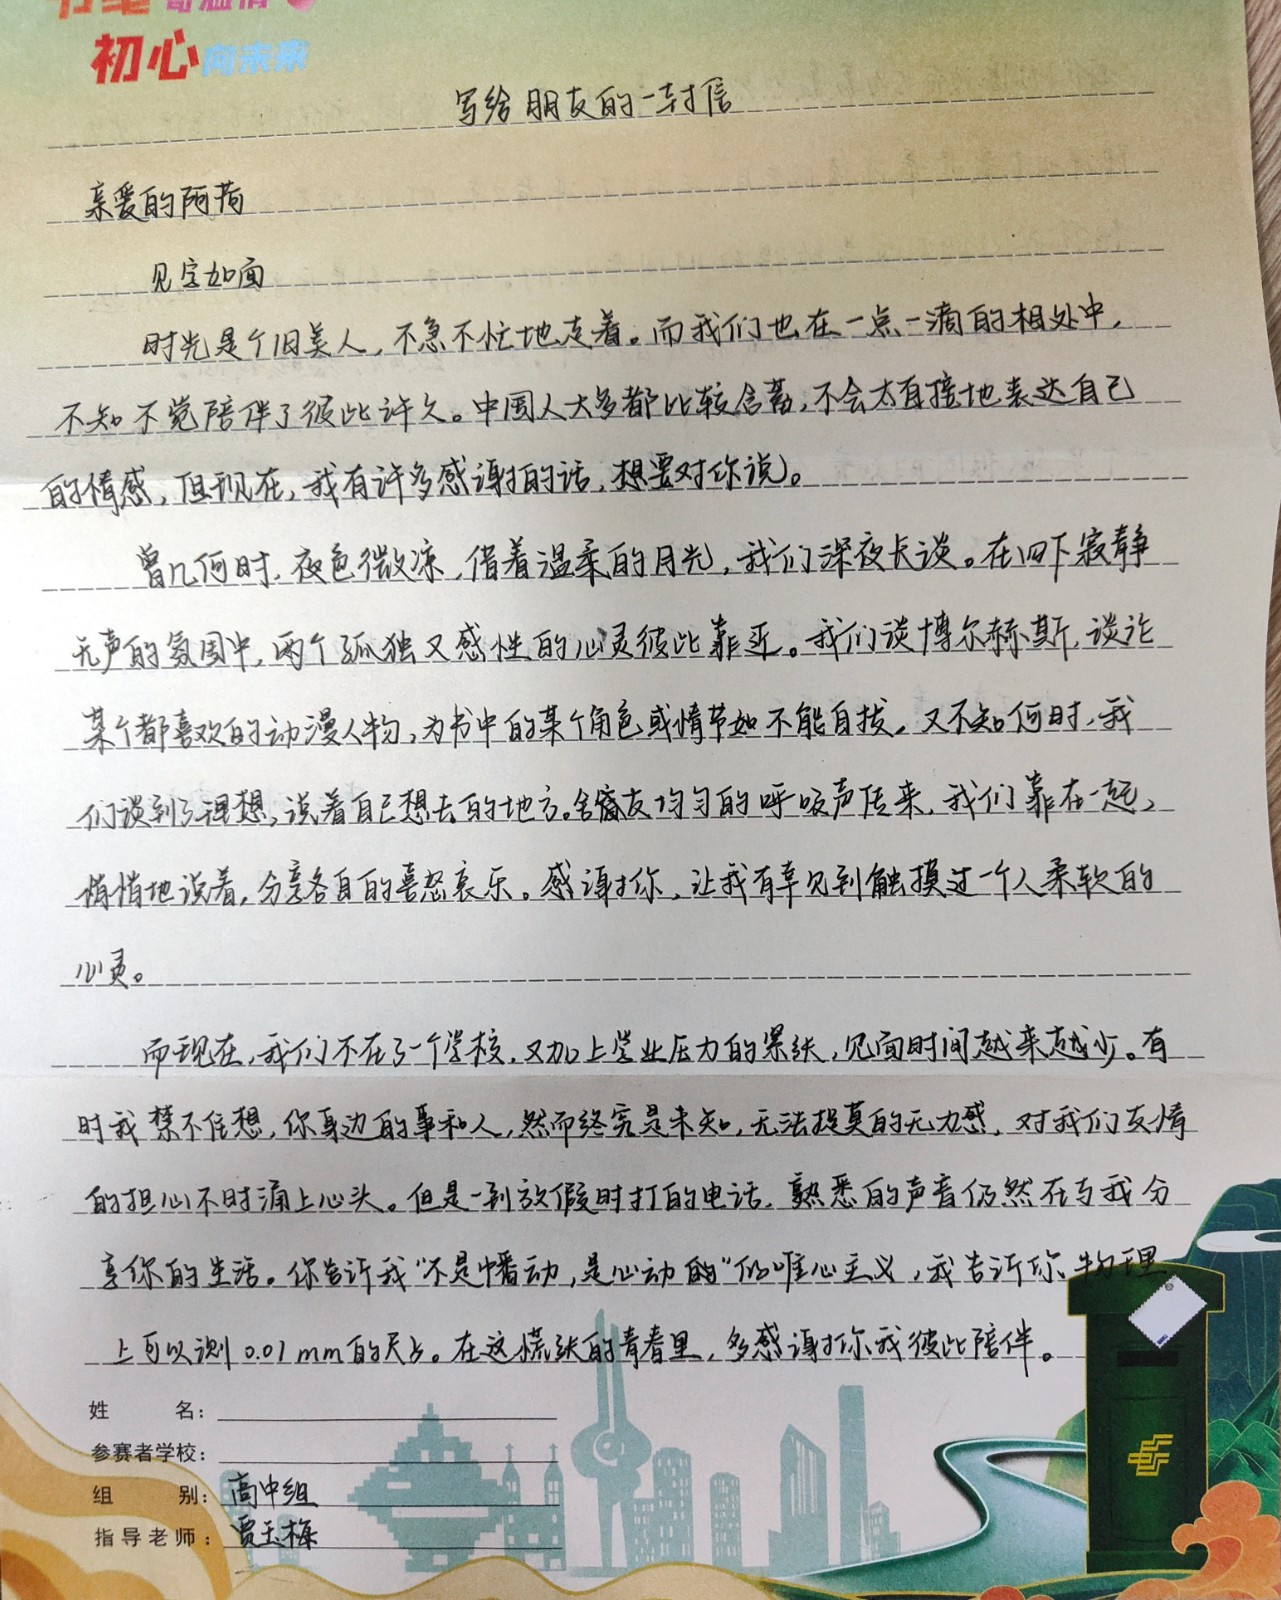 初心向未来
写给朋友的一封信
亲爱的阿荷
见字如面
时光是个旧美人，不急不忙地走着。而我们也在一点一滴的相处中，
不知不觉陪伴了彼此许久。中国人大多都比较含蓄，不会太直接地表达自己
的情感，但现在，我有许多感谢的话，想要对你说。
曾几何时，夜色微凉，借着温柔的月光，我们深夜长谈。在四下寂静
无声的氛围中，两个孤独又感性的心灵彼此靠近。我们谈博尔赫斯，谈论
某个都喜欢的动漫人物，为书中的某个角色或情节如不能自拔。又不知何时，我
们谈到了理想，说着自己想去的地方。舍友均匀的呼吸声传来，我们靠在一起，
悄悄地说着，分享各自的喜怒哀乐。感谢你，让我有幸见到触摸过一个人柔软的
心灵。
而现在，我们不在了一个学校，又加上学业压力的紧张，见面时间越来越少。有
时我禁不住想，你身边的事和人，然而终究是未知，无法捉莫的无力感，对我们友情
的担心不时涌上心头。但是一到放假时打的电话，熟悉的声音仍然在与我分
享你的生活。你告诉我“不是幡动，是心动的”的唯心主义，我告诉你物理
上可以测0.01mm的尺子。在这慌张的青春里，多感谢你我彼此陪伴。
姓 名：
参赛者学校：
组 别：高中组
指导老师：贾玉梅